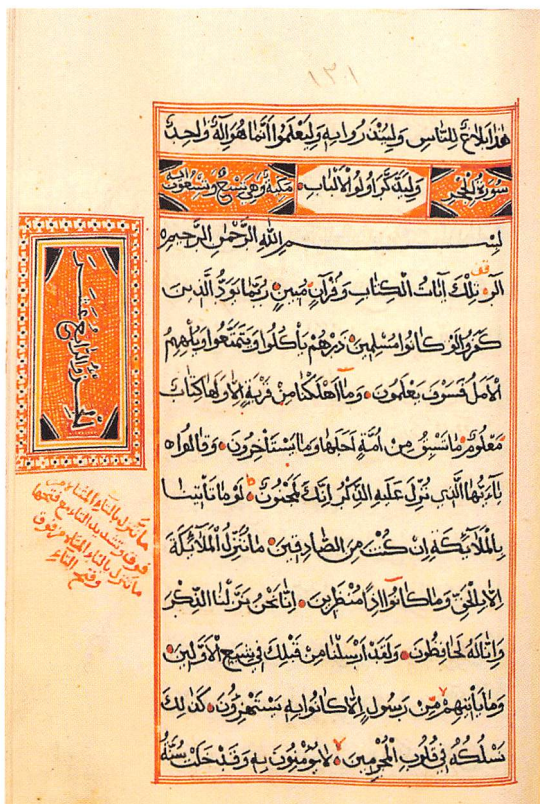 ١٣١
هٰذَا بَلَاغٌ لِلنَّاسِ وَلِيُنْذَرُوا بِهِ وَلِيَعْلَمُوا أَنَّمَا هُوَ إِلٰهٌ وَاحِدٌ
سُورَةُ الْحِجْرِ وَلِيَذَّكَّرَ أُولُوا الْأَلْبَابِ مَكِّيَّةٌ وَهِيَ تِسْعٌ وَتِسْعُونَ آيَةً
بِسْمِ اللهِ الرَّحْمٰنِ الرَّحِيمِ
الٓرٰ تِلْكَ آيَاتُ الْكِتَابِ وَقُرْآنٍ مُبِينٍ رُبَمَا يَوَدُّ الَّذِينَ
كَفَرُوا لَوْ كَانُوا مُسْلِمِينَ ذَرْهُمْ يَأْكُلُوا وَيَتَمَتَّعُوا وَيُلْهِهِمُ
الْأَمَلُ فَسَوْفَ يَعْلَمُونَ وَمَا أَهْلَكْنَا مِنْ قَرْيَةٍ إِلَّا وَلَهَا كِتَابٌ
مَعْلُومٌ مَا تَسْبِقُ مِنْ أُمَّةٍ أَجَلَهَا وَمَا يَسْتَأْخِرُونَ وَقَالُوا
يَا أَيُّهَا الَّذِي نُزِّلَ عَلَيْهِ الذِّكْرُ إِنَّكَ لَمَجْنُونٌ لَوْ مَا تَأْتِينَا
بِالْمَلَائِكَةِ إِنْ كُنْتَ مِنَ الصَّادِقِينَ مَا نُنَزِّلُ الْمَلَائِكَةَ
إِلَّا بِالْحَقِّ وَمَا كَانُوا إِذًا مُنْظَرِينَ إِنَّا نَحْنُ نَزَّلْنَا الذِّكْرَ
وَإِنَّا لَهُ لَحَافِظُونَ وَلَقَدْ أَرْسَلْنَا مِنْ قَبْلِكَ فِي شِيَعِ الْأَوَّلِينَ
وَمَا يَأْتِيهِمْ مِنْ رَسُولٍ إِلَّا كَانُوا بِهِ يَسْتَهْزِؤُنَ كَذٰلِكَ
نَسْلُكُهُ فِي قُلُوبِ الْمُجْرِمِينَ لَا يُؤْمِنُونَ بِهِ وَقَدْ خَلَتْ سُنَّةُ
الجزء الرابع عشر
ما تنزل بالتاء المثناة من
فوق وتشديد التاء مع فتحها
ما تنزل بالتاء المثناة من فوق
وفتح التاء